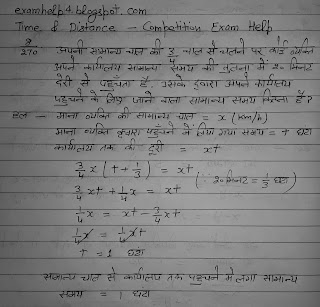 examhelp4.blogspot.com
Time & Distance - Competition Exam Help
प्र 270. अपनी सामान्य चाल की 3/4 चाल से चलने पर कोई व्यक्ति
अपने कार्यालय सामान्य समय की तुलना में 20 मिनट
देरी से पहुँचता है, उसके द्वारा अपने कार्यालय
पहुँचने के लिए जाने वाला सामान्य समय कितना है?
हल - माना व्यक्ति की सामान्य चाल = x (km/h)
माना व्यक्ति द्वारा पहुँचने में लिया गया समय = t घंटा
कार्यालय तक की दूरी = xt
3/4 x (t + 1/3) = xt
(∵ 20 मिनट = 1/3 घंटा)
3/4 xt + 1/4 x = xt
1/4 x = xt - 3/4 xt
1/4 x = 1/4 xt
t = 1 घंटा
सामान्य चाल से कार्यालय तक पहुचने में लगा सामान्य
समय = 1 घंटा